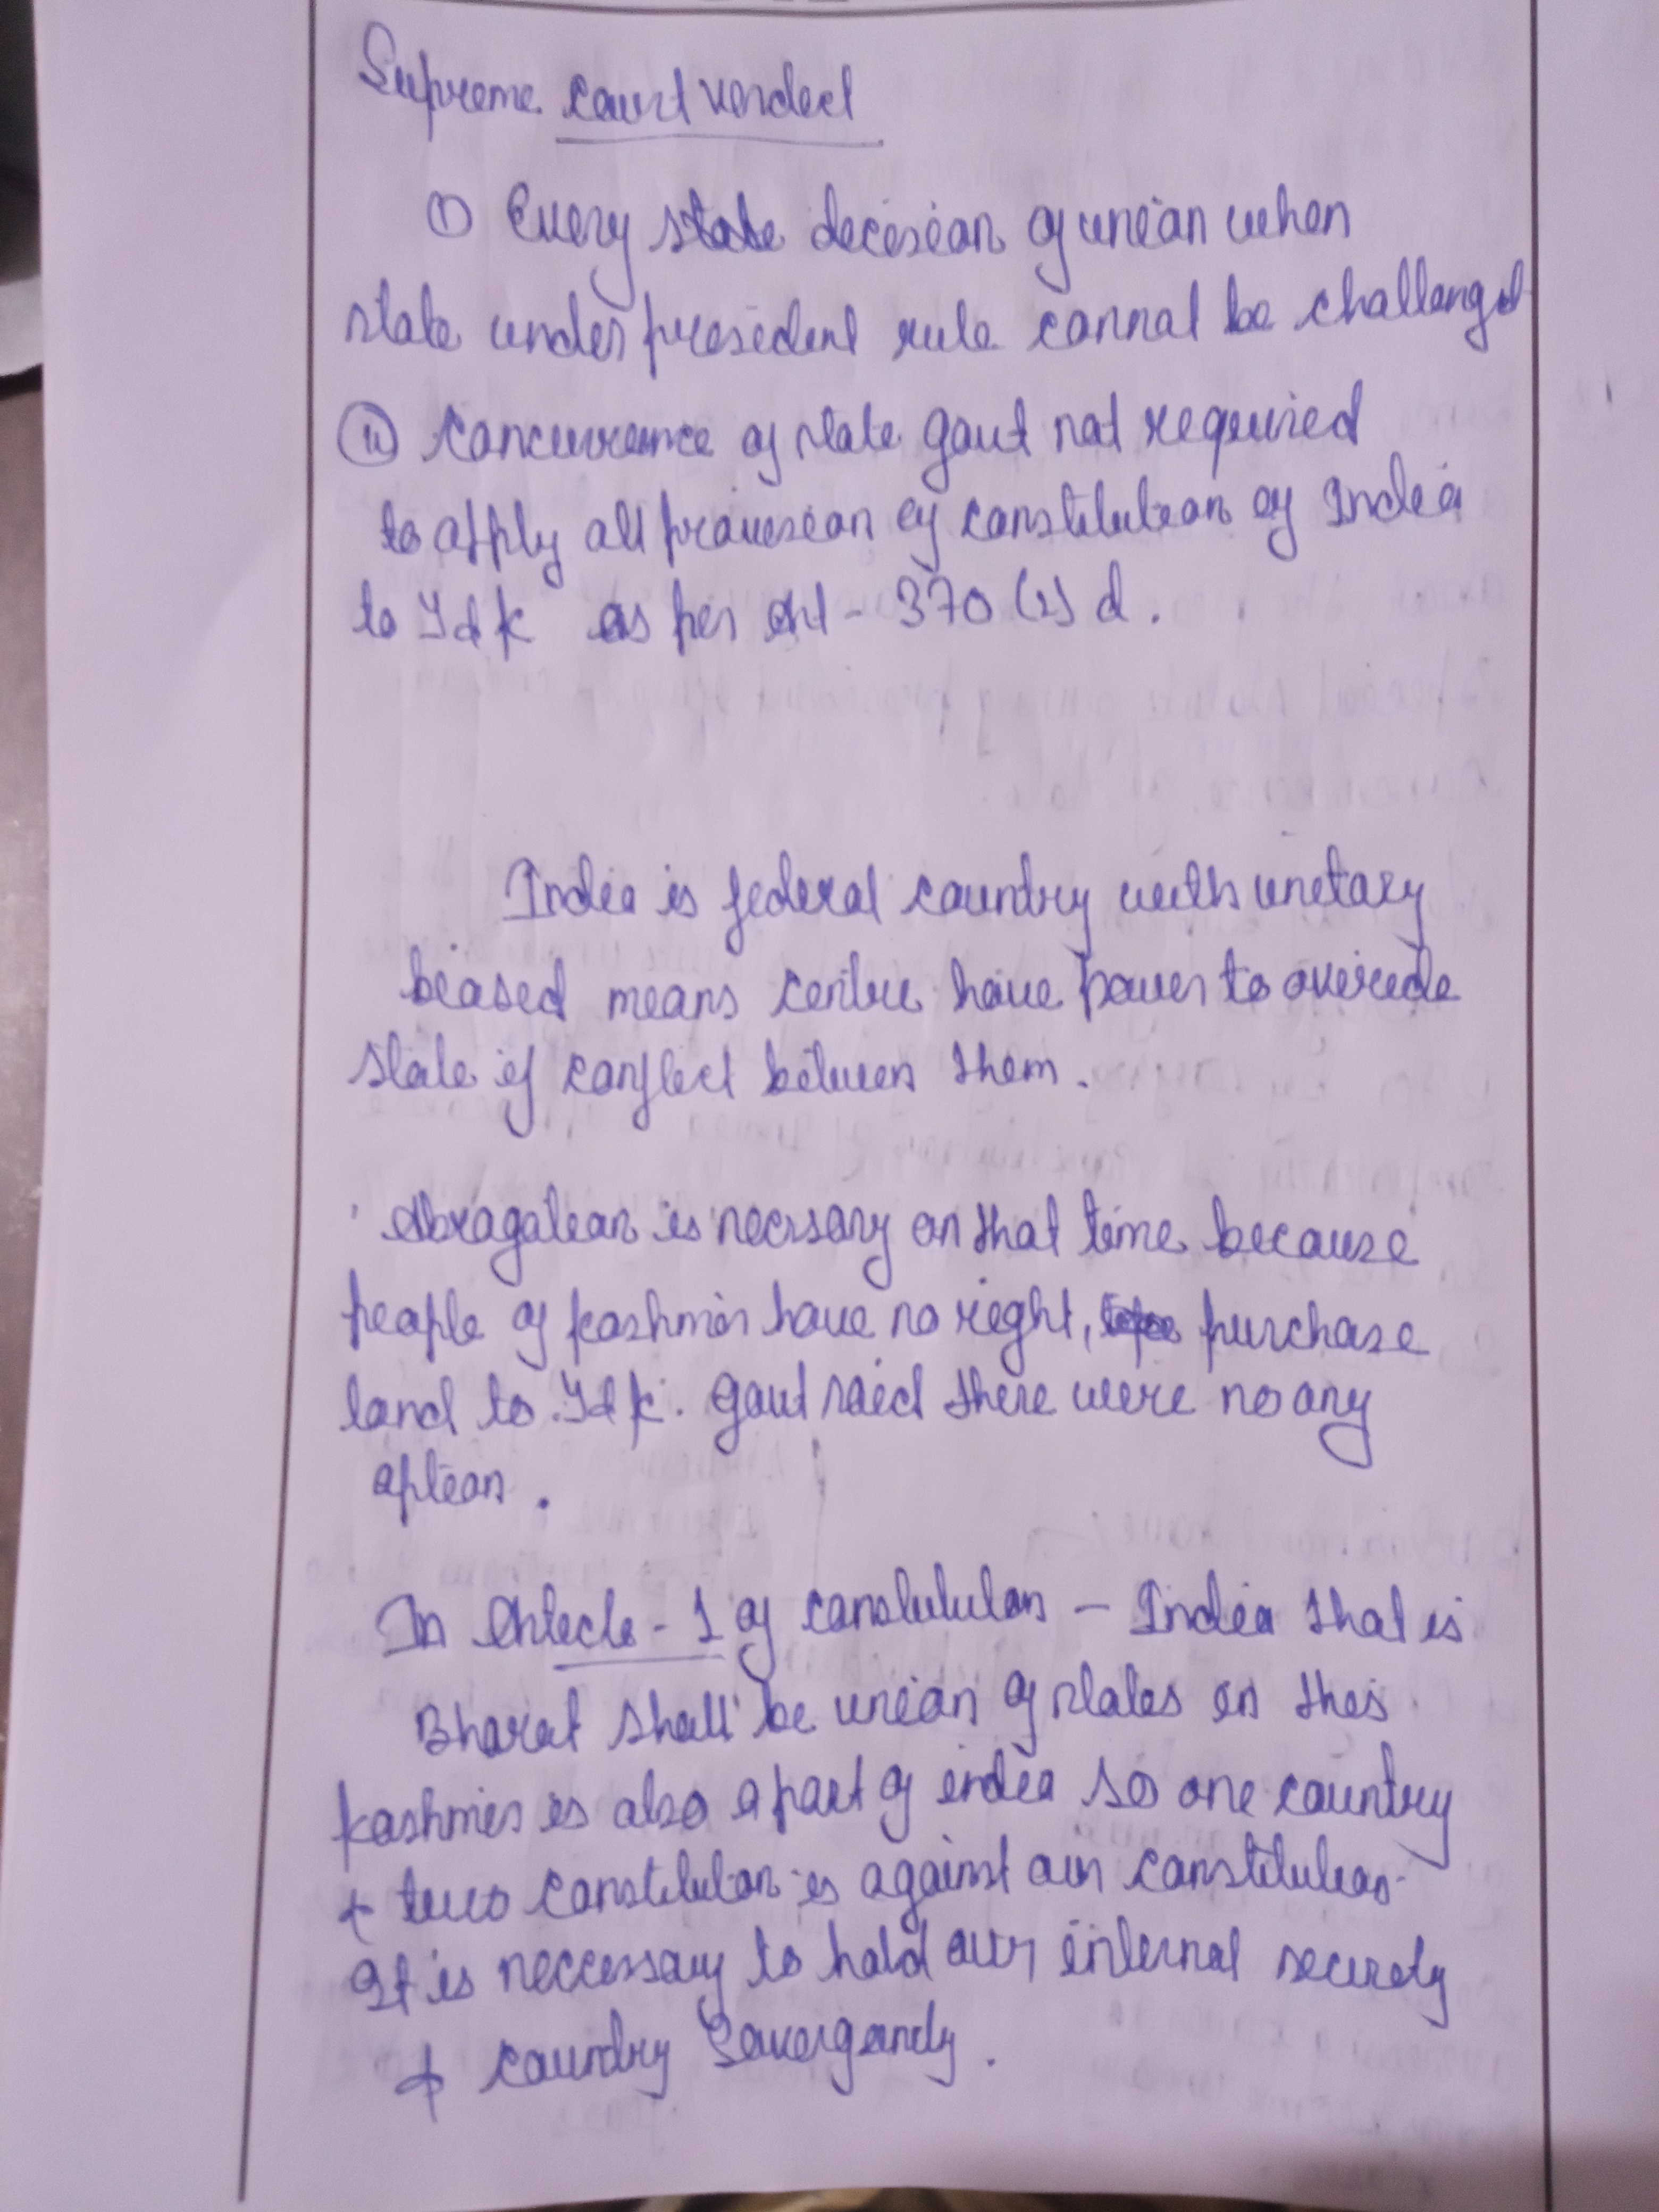 Supreme court verdect
(i) Every state decesion of union when
state under presedent rule cannot be challanged
(ii) Concurrence of state govt not required
to apply all provesion of constitution of India
to J&K as per Art - 370 (1) d.
India is federal country with unetary
beased means centre have power to overede
state if conflect between them.
Abrogation is necssary on that time because
people of Kashmir have no right, purchase
land to J&K. govt said there were no any
option.
In Artecle - 1 of constitution - India that is
Bharat shall be union of states in this
Kashmir is also a part of india so one country
& two constitution is against our constitution.
It is neccessary to hold our internal security
& country Soverganty.